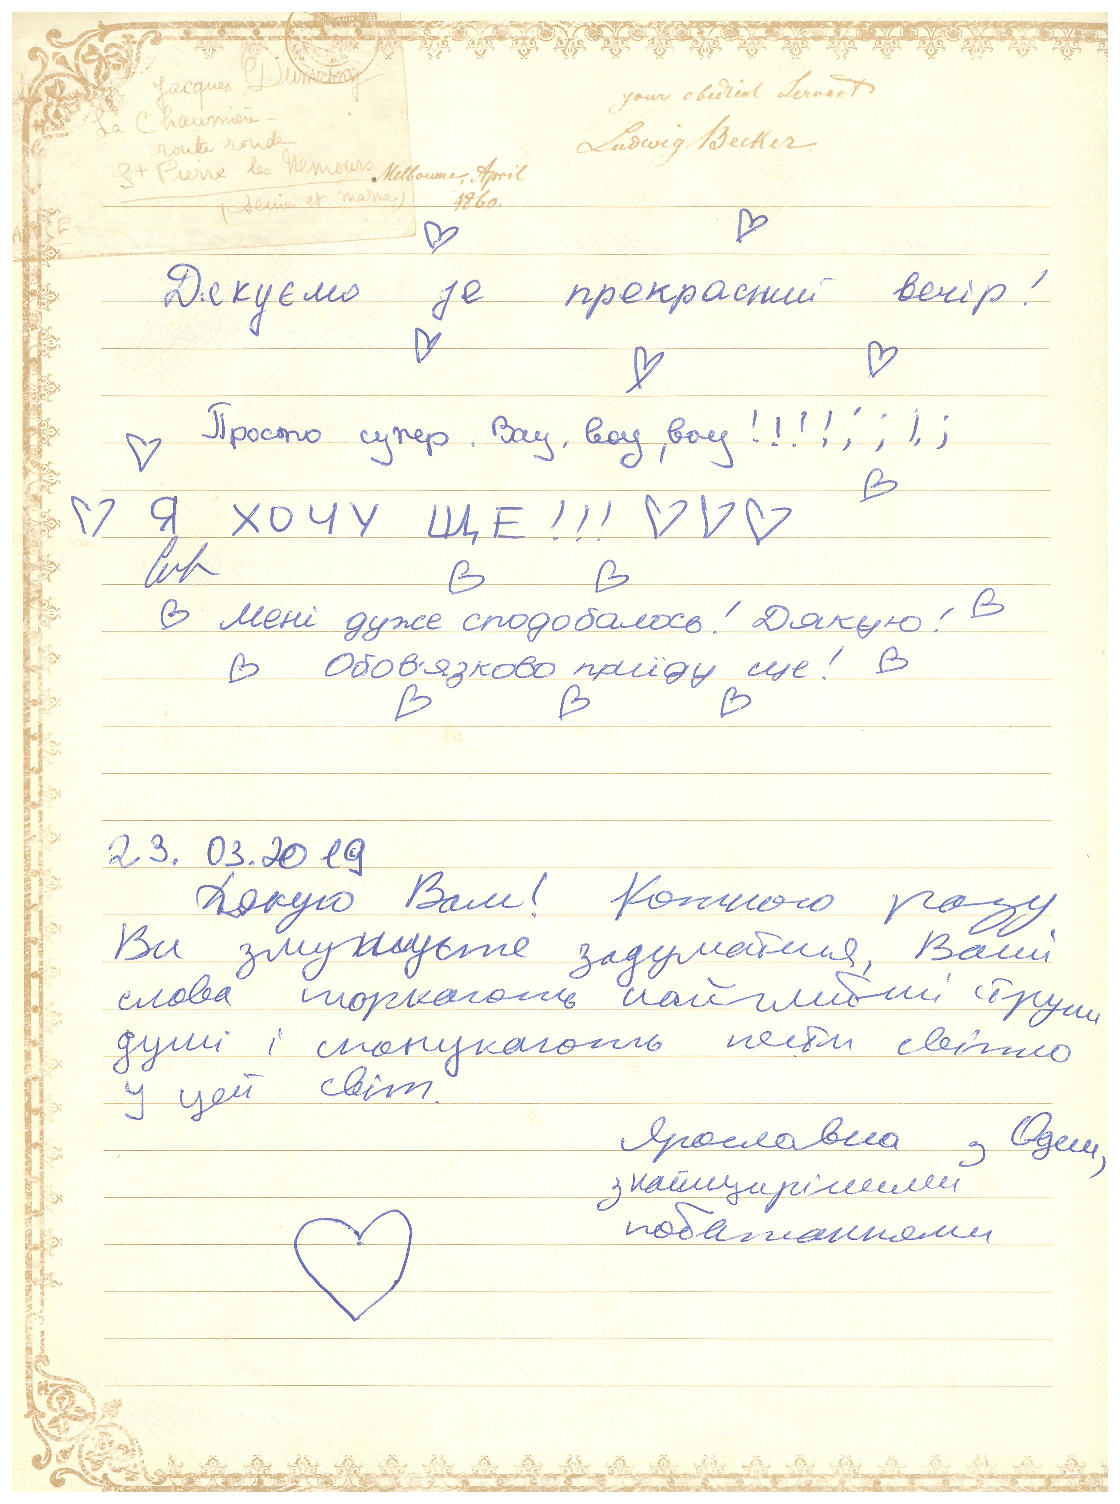 Jacques Dumesny
La Chaumière -
route ronde
St Pierre les Nemours
(Seine et marne)
your obedient Servant
Ludwig Becker
Melbourne, April
1860.
Дякуємо за прекрасний вечір!
Просто супер. Вау, вау, вау !!!!!;!;
Я ХОЧУ ЩЕ!!!
Мені дуже сподобалось! Дякую!
Обов'язково прийду ще!
23.03.2019
Дякую Вам! Кожного разу
Ви змушуєте задуматися, Ваші
слова торкають найглибші струни
душі і спонукають нести світло
у цей світ.
Ярославна з Одеси,
з найщирішими
побажаннями